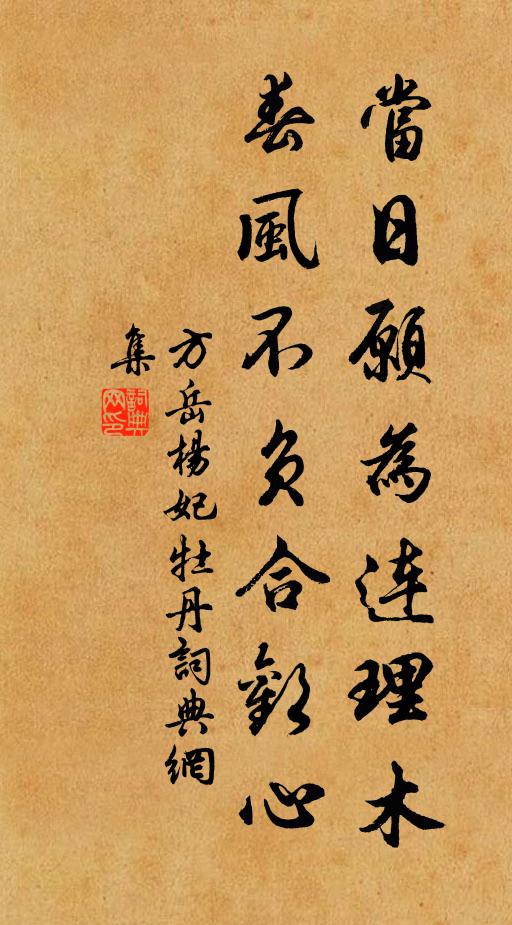 當日願為連理木
春風不負合歡心
方岳楊妃牡丹詞典網
集
詞典
网印